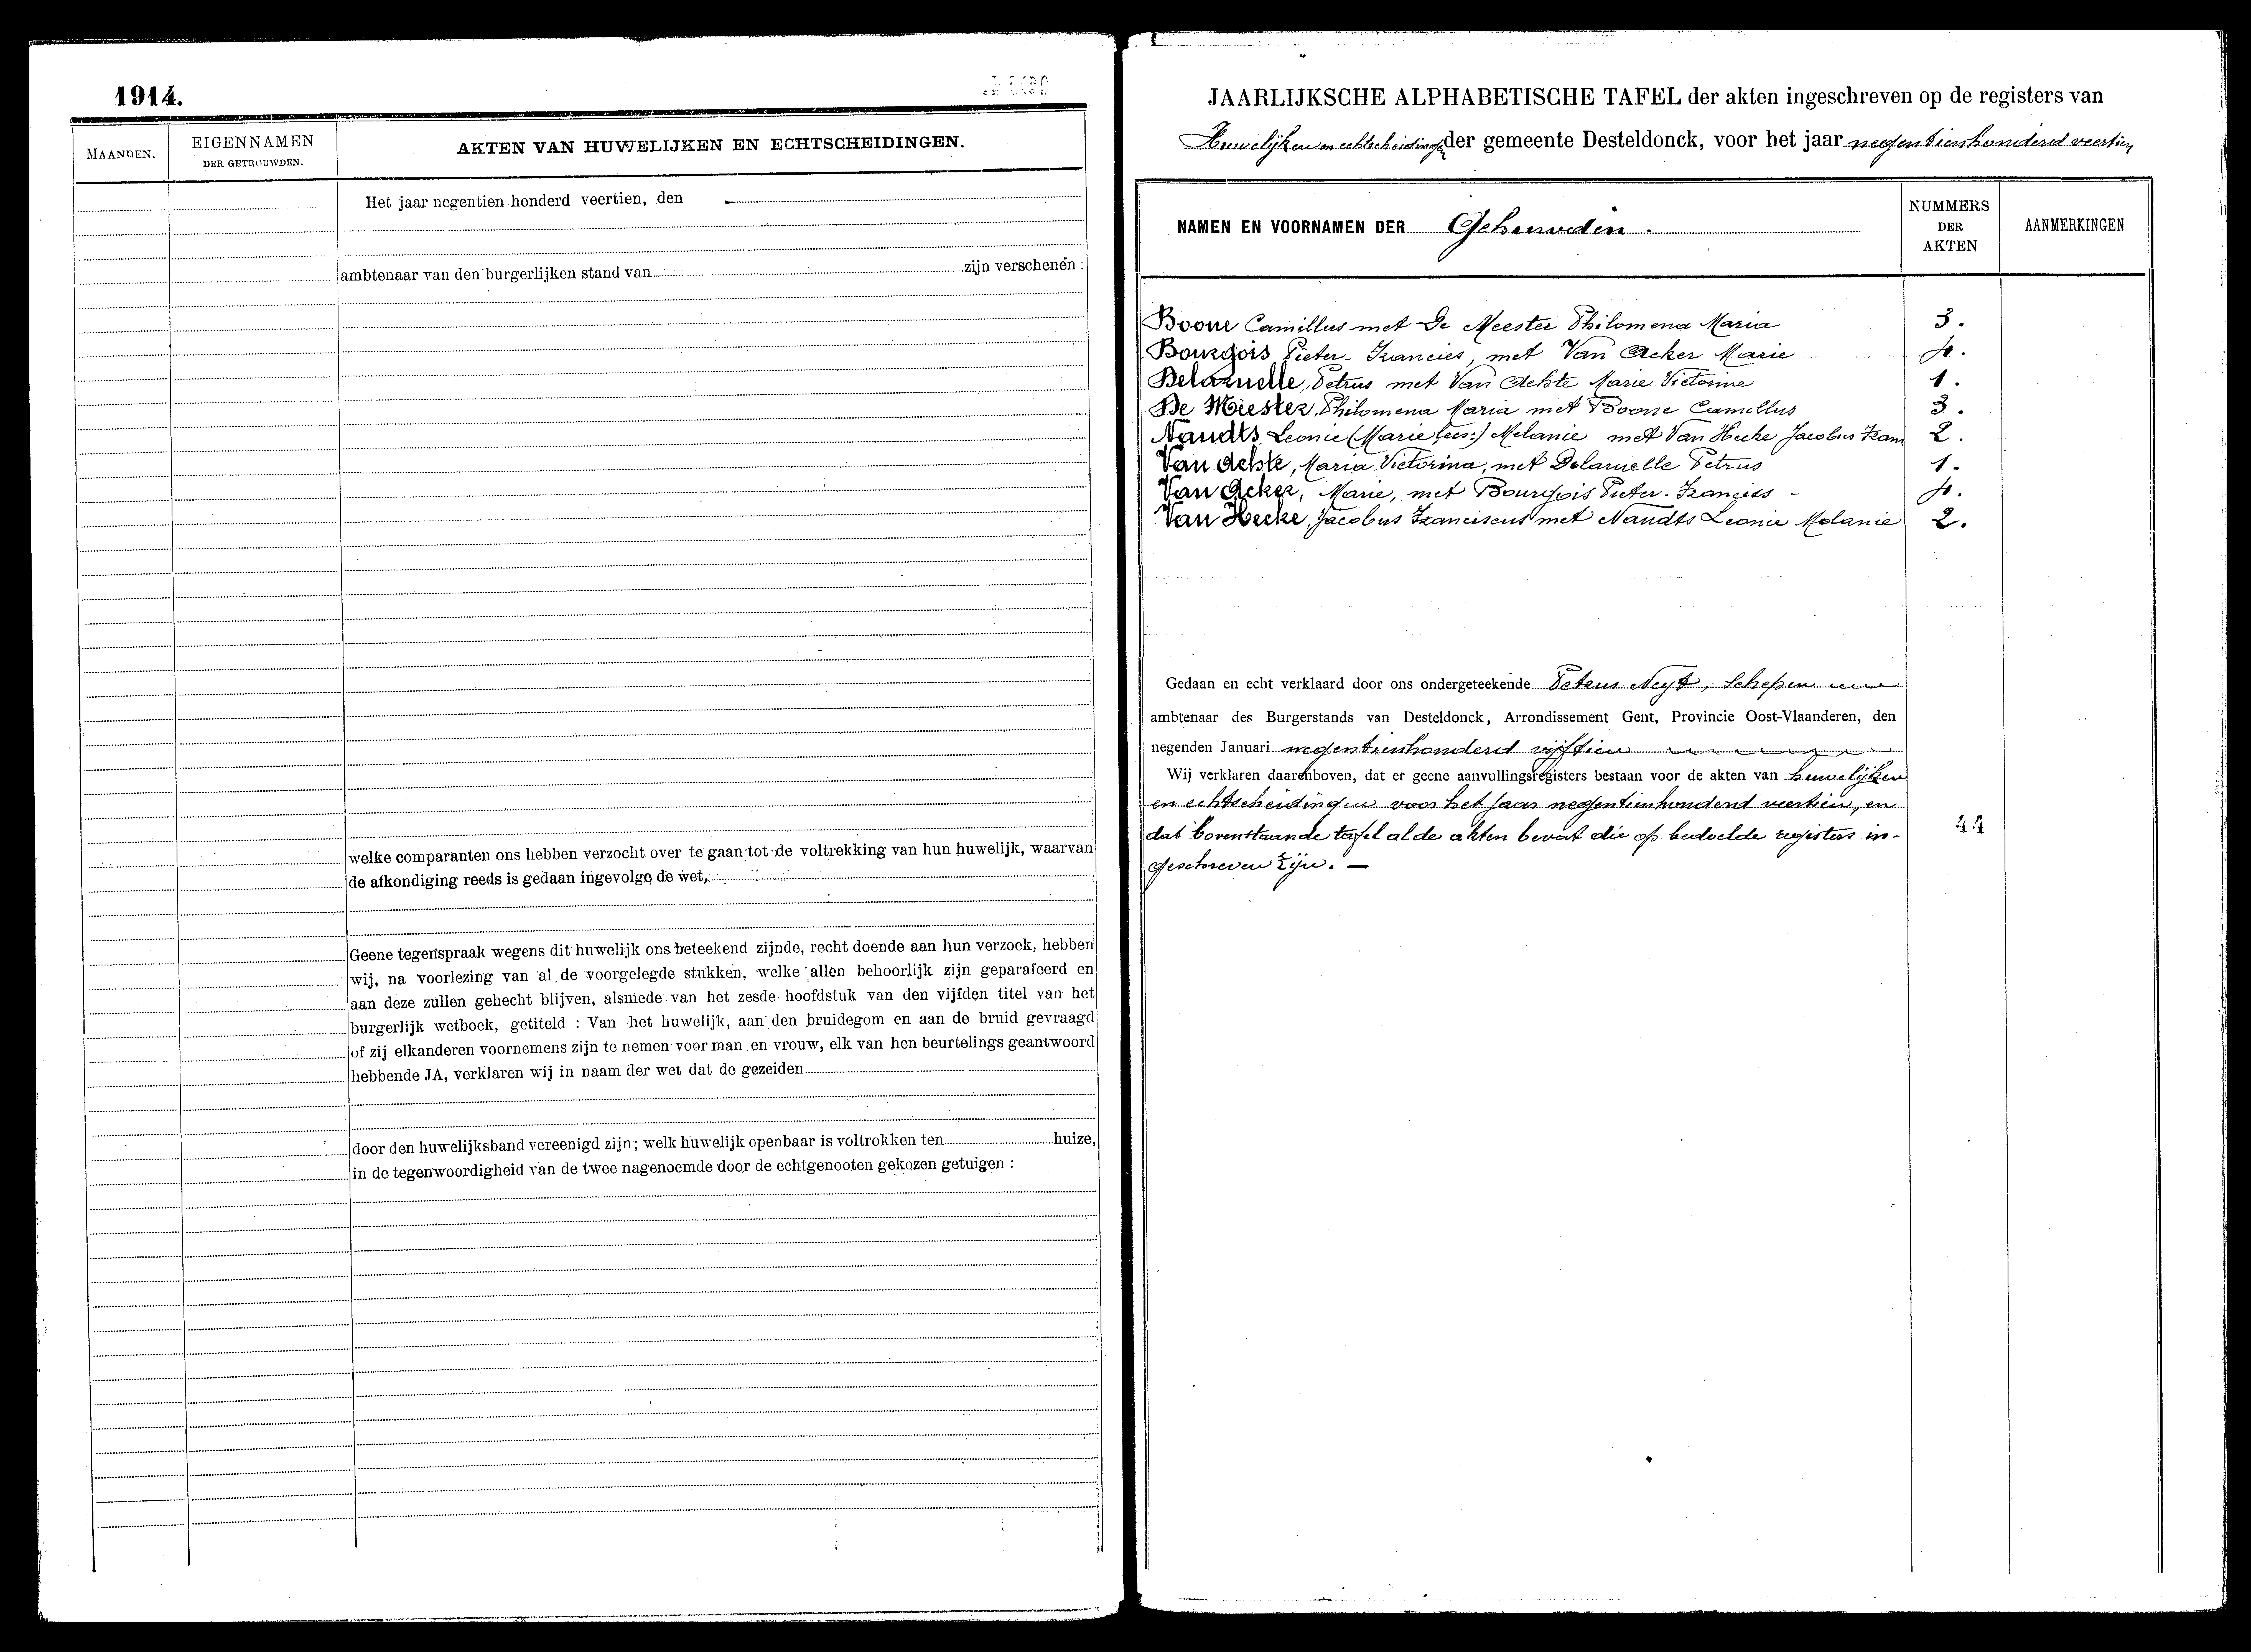 1914.
MAANDEN.
EIGENNAMEN
DER GETROUWDEN.
AKTEN VAN HUWELIJKEN EN ECHTSCHEIDINGEN.
Het jaar negentien honderd veertien, den
ambtenaar van den burgerlijken stand van zijn verschenen :
welke comparanten ons hebben verzocht over te gaan tot de voltrekking van hun huwelijk, waarvan
de afkondiging reeds is gedaan ingevolge de wet,
Geene tegenspraak wegens dit huwelijk ons beteekend zijnde, recht doende aan hun verzoek, hebben
wij, na voorlezing van al de voorgelegde stukken, welke allen behoorlijk zijn geparafeerd en
aan deze zullen gehecht blijven, alsmede van het zesde hoofdstuk van den vijfden titel van het
burgerlijk wetboek, getiteld : Van het huwelijk, aan den bruidegom en aan de bruid gevraagd
of zij elkanderen voornemens zijn te nemen voor man en vrouw, elk van hen beurtelings geantwoord
hebbende JA, verklaren wij in naam der wet dat de gezeiden
door den huwelijksband vereenigd zijn; welk huwelijk openbaar is voltrokken ten huize,
in de tegenwoordigheid van de twee nagenoemde door de echtgenooten gekozen getuigen :
JAARLIJKSCHE ALPHABETISCHE TAFEL der akten ingeschreven op de registers van
Huwelijken en echtscheidingen der gemeente Desteldonck, voor het jaar negentienhonderd veertien
NAMEN EN VOORNAMEN DER Gehuwden.
NUMMERS
DER
AKTEN
AANMERKINGEN
Boone Camillus met De Meester Philomena Maria 3.
Bourgois Pieter-Francies, met Van Acker Marie 4.
Delaruelle, Petrus met Van Achte Marie Victorine 1.
De Meester, Philomena Maria met Boone Camillus 3.
Naudts Leonie (Marie lees:) Melanie met Van Hecke Jacobus Fran 2.
Van Achte, Maria Victorina, met Delaruelle Petrus 1.
Van Acker, Marie, met Bourgois Pieter-Francies - 4.
Van Hecke, Jacobus Franciscus met Naudts Leonie Melanie 2.
Gedaan en echt verklaard door ons ondergeteekende Petrus Neyt, Schepen
ambtenaar des Burgerstands van Desteldonck, Arrondissement Gent, Provincie Oost-Vlaanderen, den
negenden Januari negentienhonderd vijftien
Wij verklaren daarenboven, dat er geene aanvullingsregisters bestaan voor de akten van huwelijken
en echtscheidingen voor het jaar negentienhonderd veertien, en
dat bovenstaande tafel al de akten bevat die op bedoelde registers in-
geschreven zijn. —